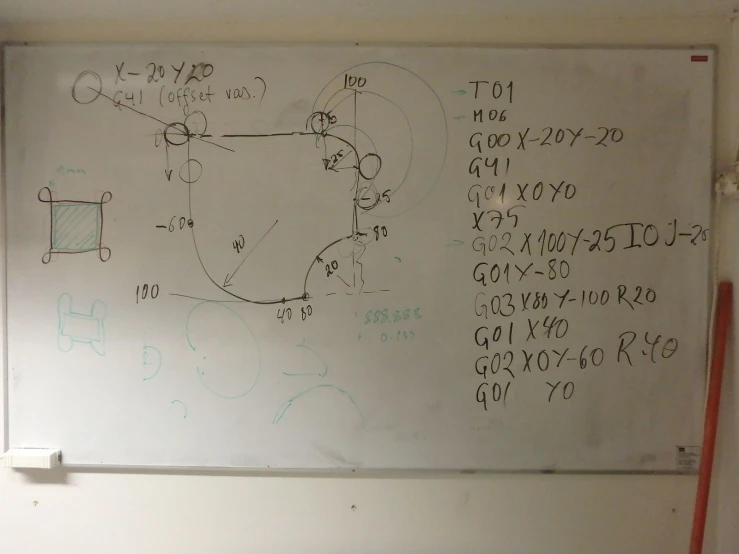 X-20Y20
G41 (offset vas.)
100
25
-60
40
-80
20
100
40 80
888.888
T01
M06
G00 X-20Y-20
G41
G01 X0Y0
X75
G02 X100Y-25 I0 J-25
G01Y-80
G03X80Y-100 R20
G01 X40
G02 X0Y-60 R40
G01 Y0